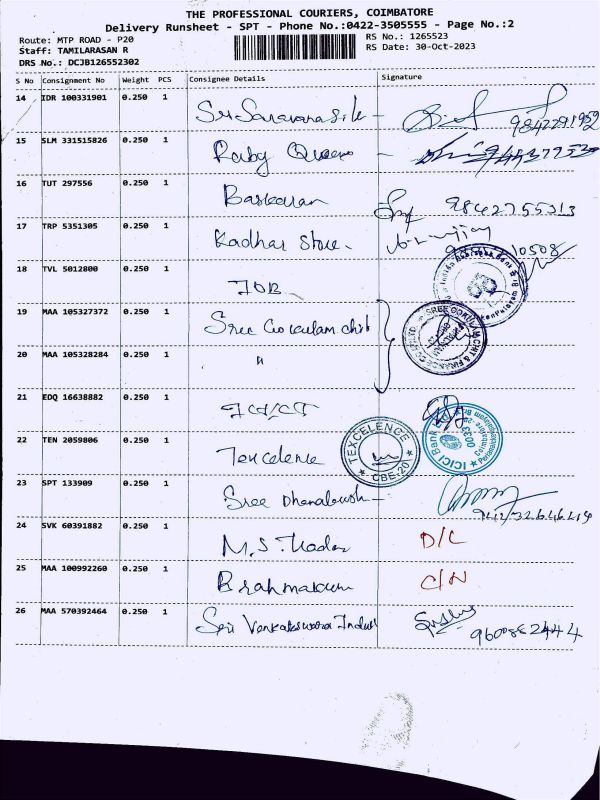 THE PROFESSIONAL COURIERS, COIMBATORE
Delivery Runsheet - SPT - Phone No.:0422-3505555 - Page No.:2
Route: MTP ROAD - P20
RS No.: 1265523
Staff: TAMILARASAN R
RS Date: 30-Oct-2023
DRS No.: DCJB126552302
S No Consignment No Weight PCS Consignee Details Signature
14 IDR 100331901 0.250 1 Sri Saravana silk
15 SLM 331515826 0.250 1 Ruby Queen -
16 TUT 297556 0.250 1 Baskaran 9842755313
17 TRP 5351305 0.250 1 Kadhar Store -
18 TVL 5012800 0.250 1 IOB
19 MAA 105327372 0.250 1 Sree Gokulam chit
SREE GOKULAM CHIT & FINANCE CO
20 MAA 105328284 0.250 1 "
21 EDQ 16638882 0.250 1 ICICI
ICICI Bank
22 TEN 2059806 0.250 1 Texcelence
TEXCELENCE
CBE-20
23 SPT 133909 0.250 1 Sree
24 SVK 60391882 0.250 1 M.S. D/L
25 MAA 100992260 0.250 1 C/N
26 MAA 570392464 0.250 1 Sri Venkateswara